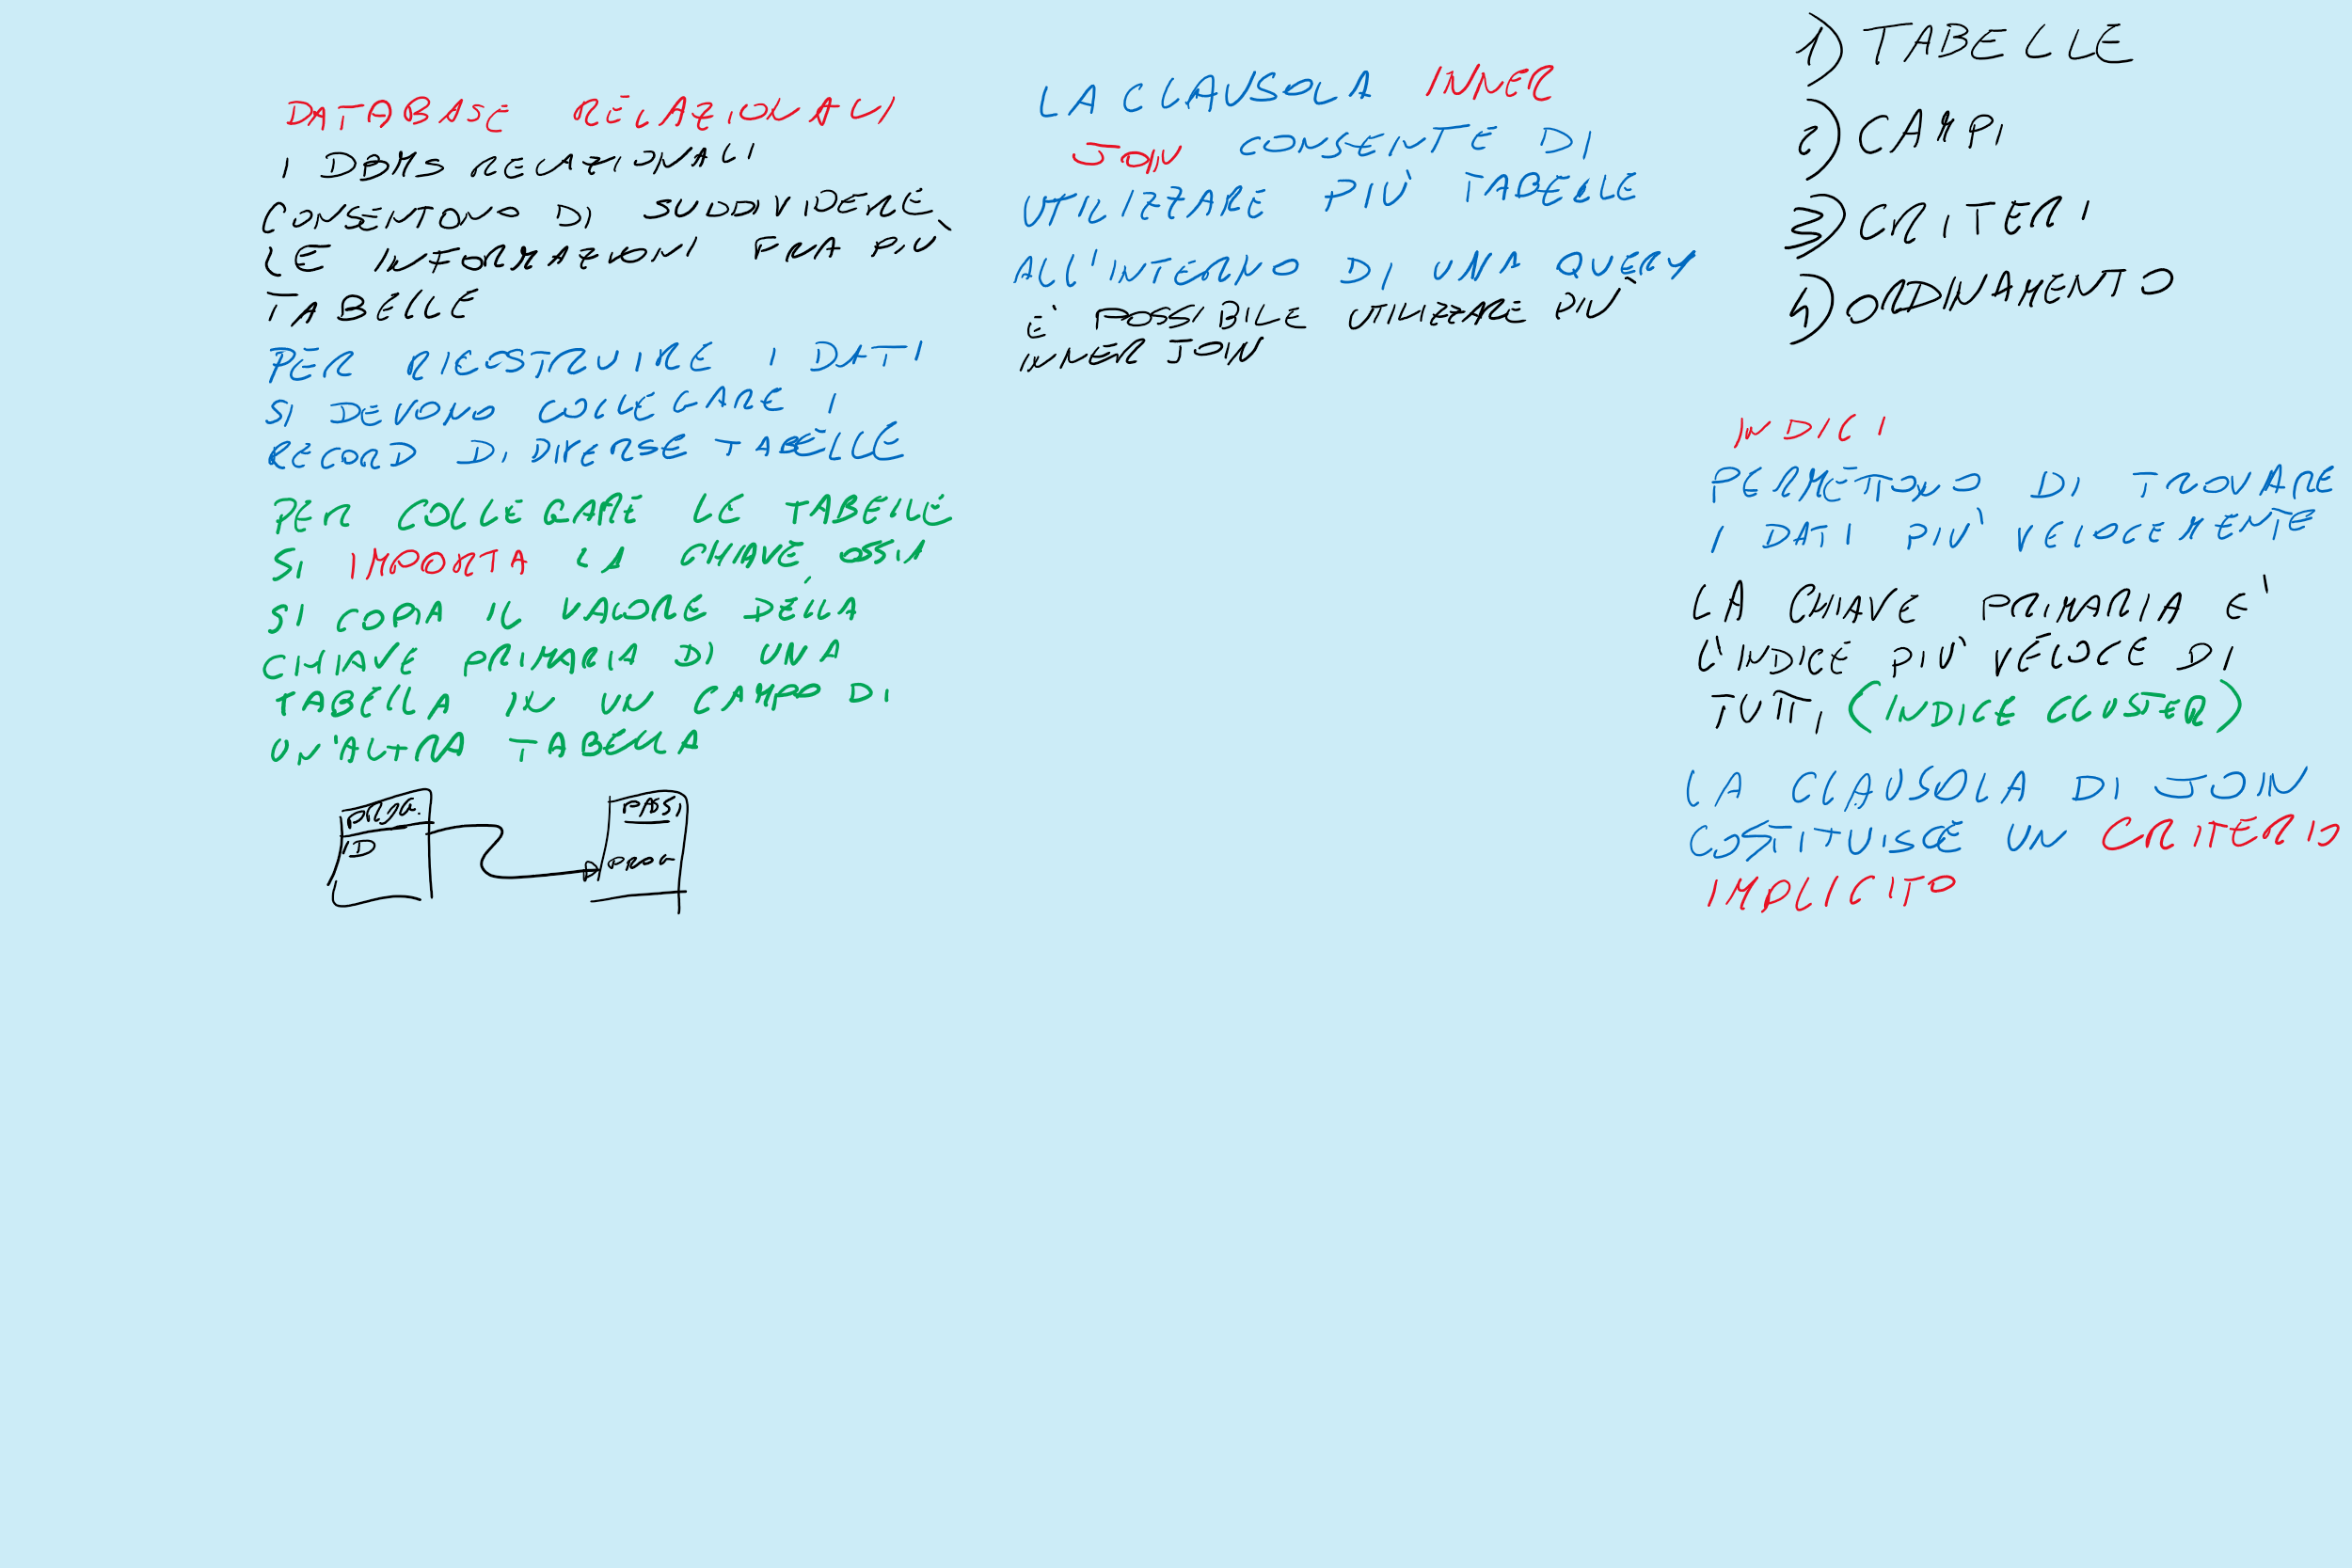 DATABASE RELAZIONALI
I DBMS RELAZIONALI
CONSENTONO DI SUDDIVIDERE
LE INFORMAZIONI FRA PIÙ
TABELLE
PER RICOSTRUIRE I DATI
SI DEVONO COLLEGARE I
RECORD DI DIVERSE TABELLE
PER COLLEGARE LE TABELLE
SI IMPORTA LA CHIAVE, OSSIA
SI COPIA IL VALORE DELLA
CHIAVE PRIMARIA DI UNA
TABELLA IN UN CAMPO DI
UN'ALTRA TABELLA
PROG.
ID
PASSI
PROG
LA CLAUSOLA INNER
JOIN CONSENTE DI
UTILIZZARE PIÙ TABELLE
ALL'INTERNO DI UNA QUERY
E' POSSIBILE UTILIZZARE PIÙ
INNER JOIN
1) TABELLE
2) CAMPI
3) CRITERI
4) ORDINAMENTO
INDICI
PERMETTONO DI TROVARE
I DATI PIU' VELOCEMENTE
LA CHIAVE PRIMARIA E'
L'INDICE PIU' VELOCE DI
TUTTI (INDICE CLUSTER)
LA CLAUSOLA DI JOIN
COSTITUISCE UN CRITERIO
IMPLICITO